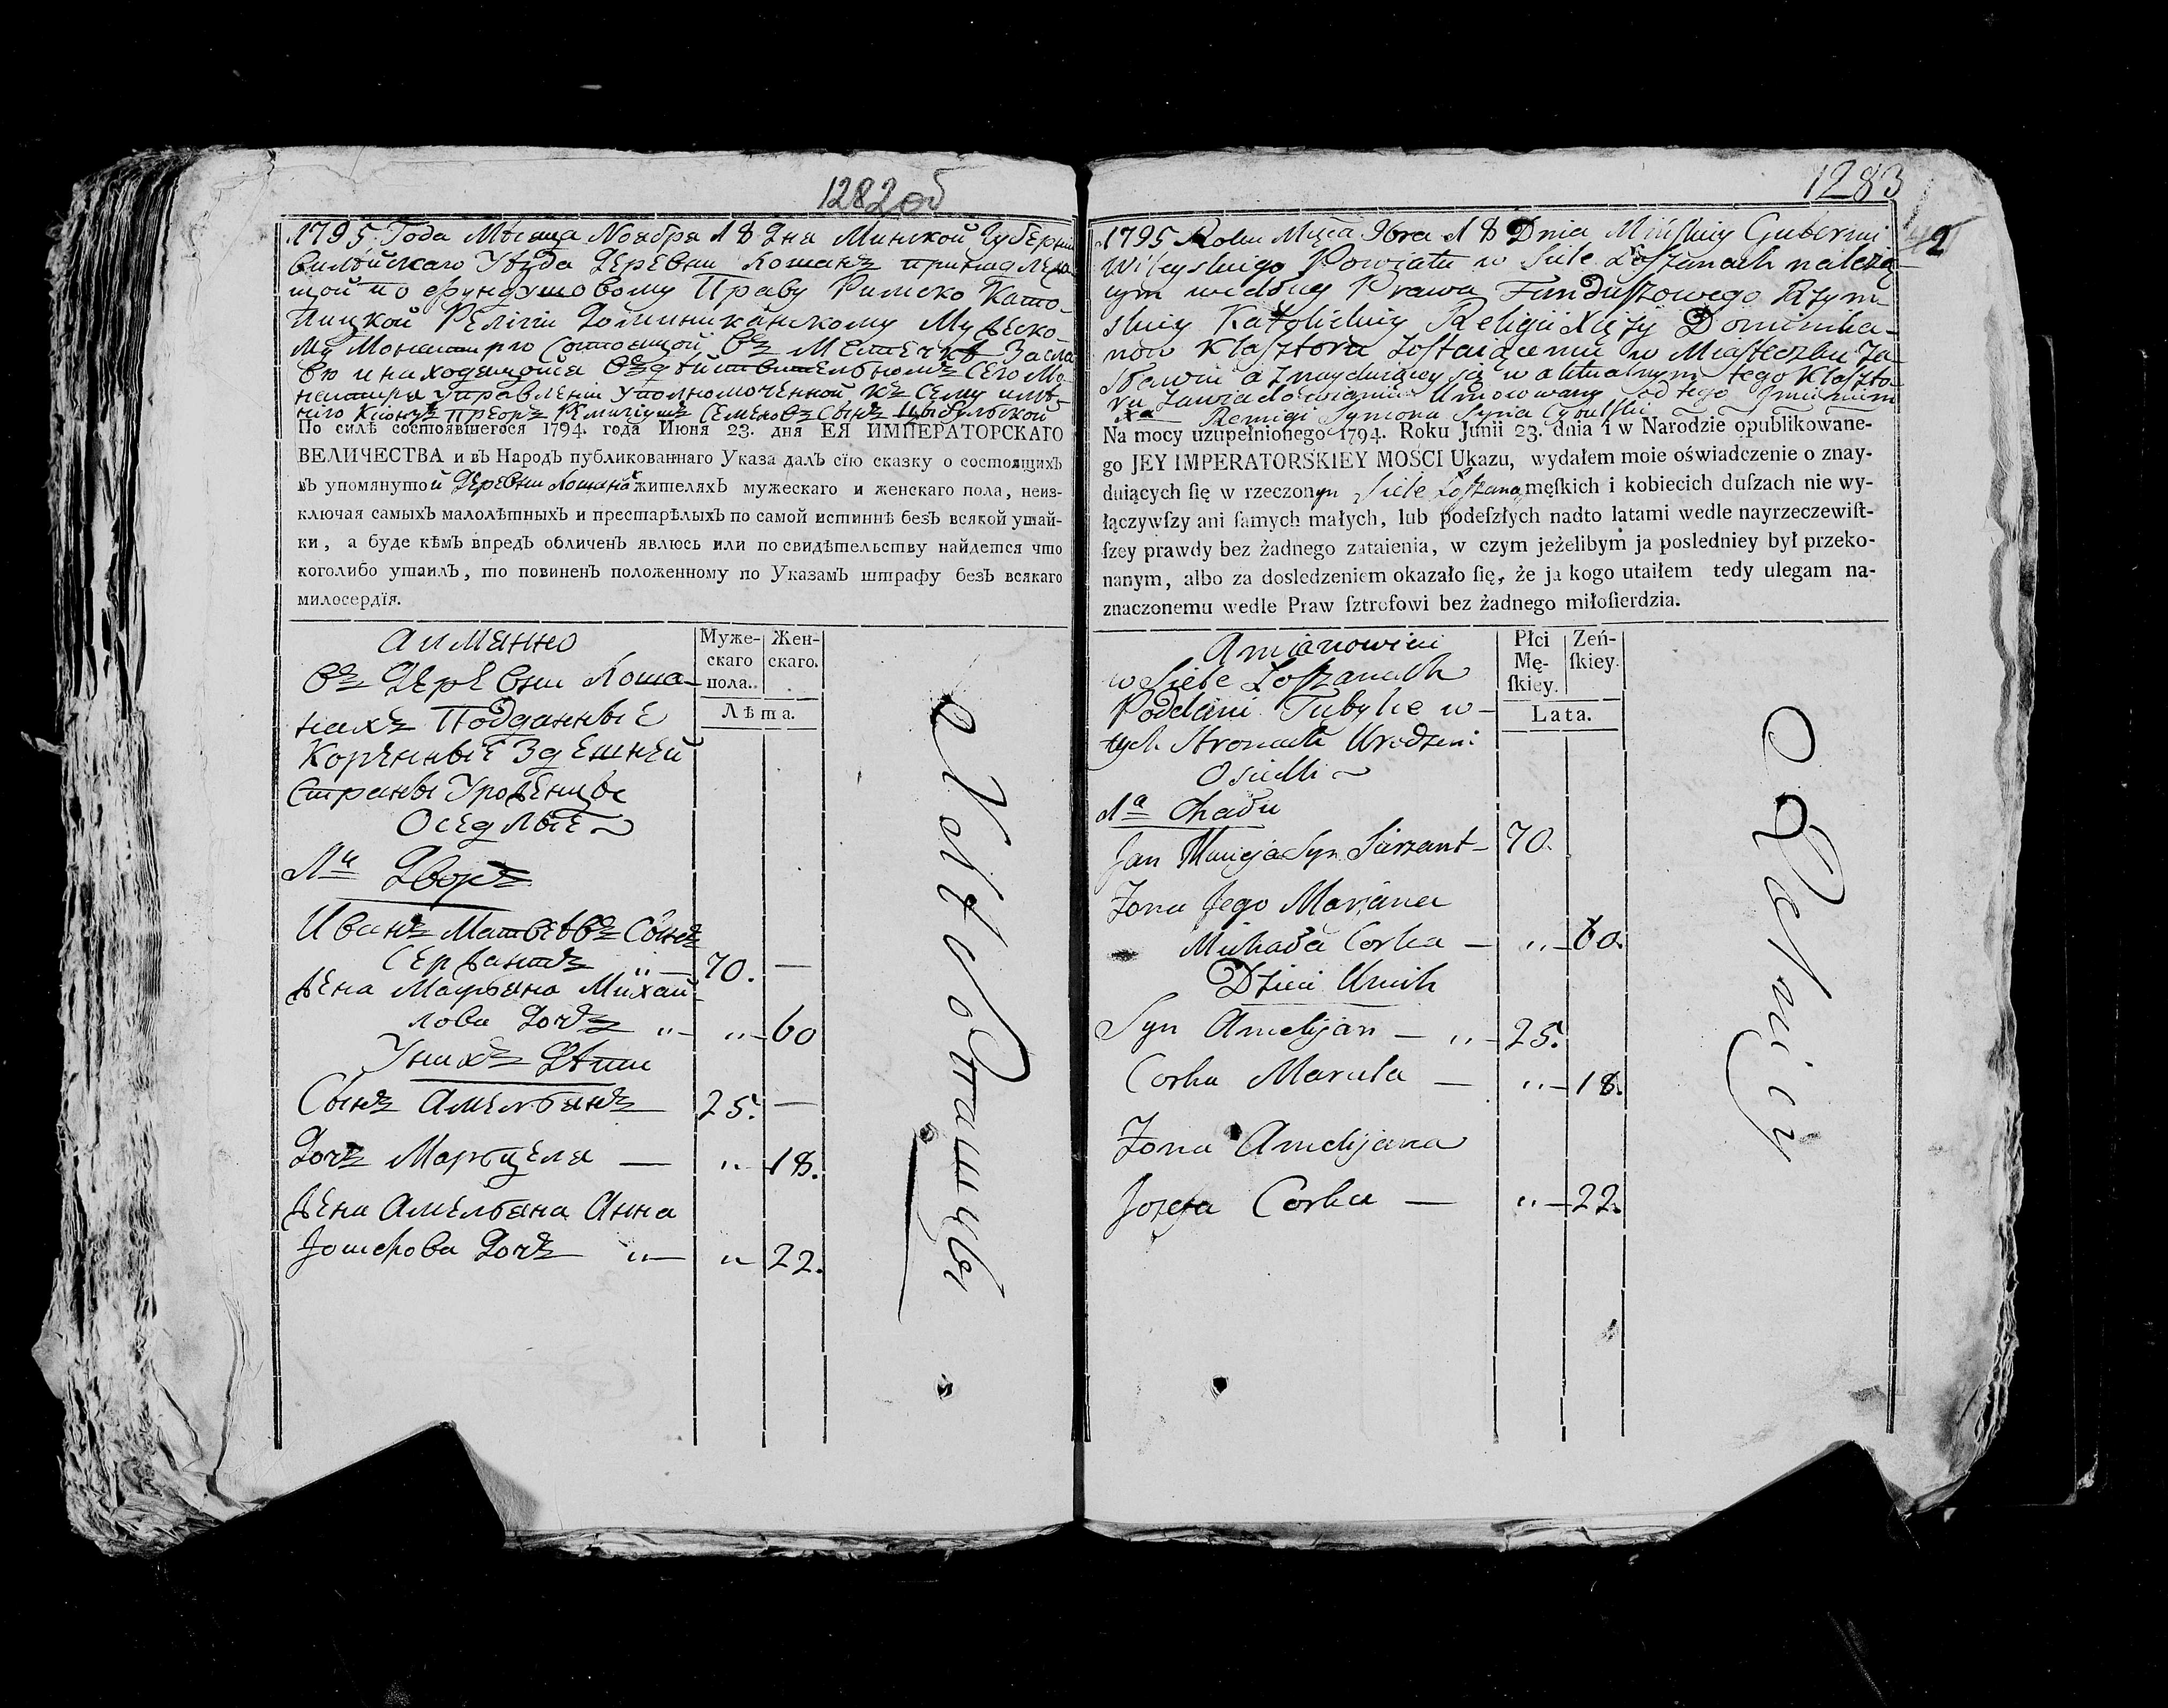 1282об
1795 Года Мѣсяца Ноября 18 Дня Минской Губерніи
Вилейскаго Уѣзда Деревни Лошанъ принадлежа-
щой по фундушовому Праву Римско Като-
лицкой Религіи Доминиканскому Мужеско-
му Монастырю состоящой Въ Местечкѣ Засла-
вю и находящойся Въ дѣйствительномъ Сего Мо-
настыря Управленіи Уполномоченной Къ Сему имѣ-
нію Ксіондзъ Преоръ Ремигіушъ Семеновъ Сынъ Цыбульской
По силѣ состоявшегося 1794. года Июня 23. дня ЕЯ ИМПЕРАТОРСКАГО
ВЕЛИЧЕСТВА и въ Народъ публикованнаго Указа далъ сїю сказку о состоящихъ
въ упомянутой Деревни Лошанахъ жителяхъ мужескаго и женскаго пола, неиз-
ключая самыхъ малолѣтныхъ и престарѣлыхъ по самой истиннѣ безъ всякой утай-
ки, а буде кѣмъ впредъ обличенъ явлюсь или по свидѣтельству найдется что
коголибо утаилъ, то повиненъ положенному по Указамъ штрафу безъ всякаго
милосердїя.
А имянно
Въ Деревни Лоша-
нахъ Подданные
Коренные Здешней
Страны Уроженцы
Оседлые
Муже-
скаго
пола.
Жен-
скаго.
Лѣта.
1й Дворъ
Иванъ Матвѣевъ Сынъ
Сержантъ „— 70. —
Жена Марьяна Михай-
лова Дочь „— „— 60
У нихъ Дѣти
Сынъ Амельянъ 25. —
Дочь Марьцеля — „ 18.
Жена Амельяна Анна
Іозефова Дочь „— „ 22.
1283
2
1795 Roku Mięca 9bra 18 Dnia Mińskiey Gubernii
Wileyskiego Powiatu w Siele Łoszanach należą-
cym wedłóg Prawa Funduszowego Rzym-
skiey Katolickiey Religii Xięży Dominika-
now Klasztoru zostaiącemu w Miasteczku Za-
sławiu a znayduiącey się w aktualnym tego Klaszto-
ru zawiadowaniu Umocowany od tego Imienia
Xa Remigi Symona Syna Cybulski
Na mocy uzupełnionego 1794. Roku Junii 23. dnia i w Narodzie opublikowane-
go JEY IMPERATORSKIEY MOSCI Ukazu, wydałem moie oświadczenie o znay-
duiących ſię w rzeczonym Siele Łoszana męſkich i kobiecich duſzach nie wy-
łączywſzy ani ſamych małych, lub podeſzłych nadto latami wedle nayrzeczewiſt-
ſzey prawdy bez żadnego zataienia, w czym jeżelibym ja posledniey był przeko-
nanym, albo za dosledzeniem okazało ſię, że ja kogo utaiłem tedy ulegam na-
znaczonemu wedle Praw ſztrofowi bez żadnego miłoſierdzia.
A mianowicie
w Siele Łoszanach
Poddani Tubylce w
tych Stronach Urodzeni
Osiedli
Płci
Mę-
ſkiey.
Zeń-
ſkiey.
Lata.
1a Chada
Jan Macieja Syn Sierzant — 70.
Zona Jego Mariana
Michała Corka — „— 60.
Dzieci Unich
Syn Amelijan — „— 25.
Corka Marcela — „— 18.
Zona Amelijana
Jozefa Corka — „— 22.